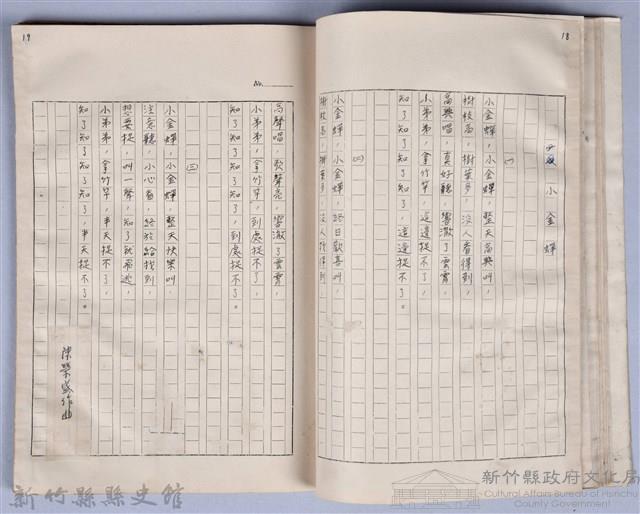 18
小金蟬
(一)
小金蟬，小金蟬，整天高興叫，
樹枝高，樹葉多，沒人看得到，
高興唱，真好聽，響澈了雲霄，
小弟弟，拿竹竿，這邊捉不了，
知了知了知了知了，這邊捉不了。
(二)
小金蟬，小金蟬，終日歡喜叫，
樹枝高，樹葉多，沒人找得到
19
No.
高聲唱，歌聲亮，響澈了雲霄，
小弟弟，拿竹竿，到處捉不了，
知了知了知了知了，到處捉不了。
(三)
小金蟬，小金蟬，整天快樂叫，
注意聽，小心看，終於給找到，
想要捉，叫一聲，知了就飛逃，
小弟弟，拿竹竿，半天捉不了，
知了知了知了知了，半天捉不了。
陳榮盛作曲
新竹縣縣史館
新竹縣政府文化局
Cultural Affairs Bureau of Hsinchu
County Government